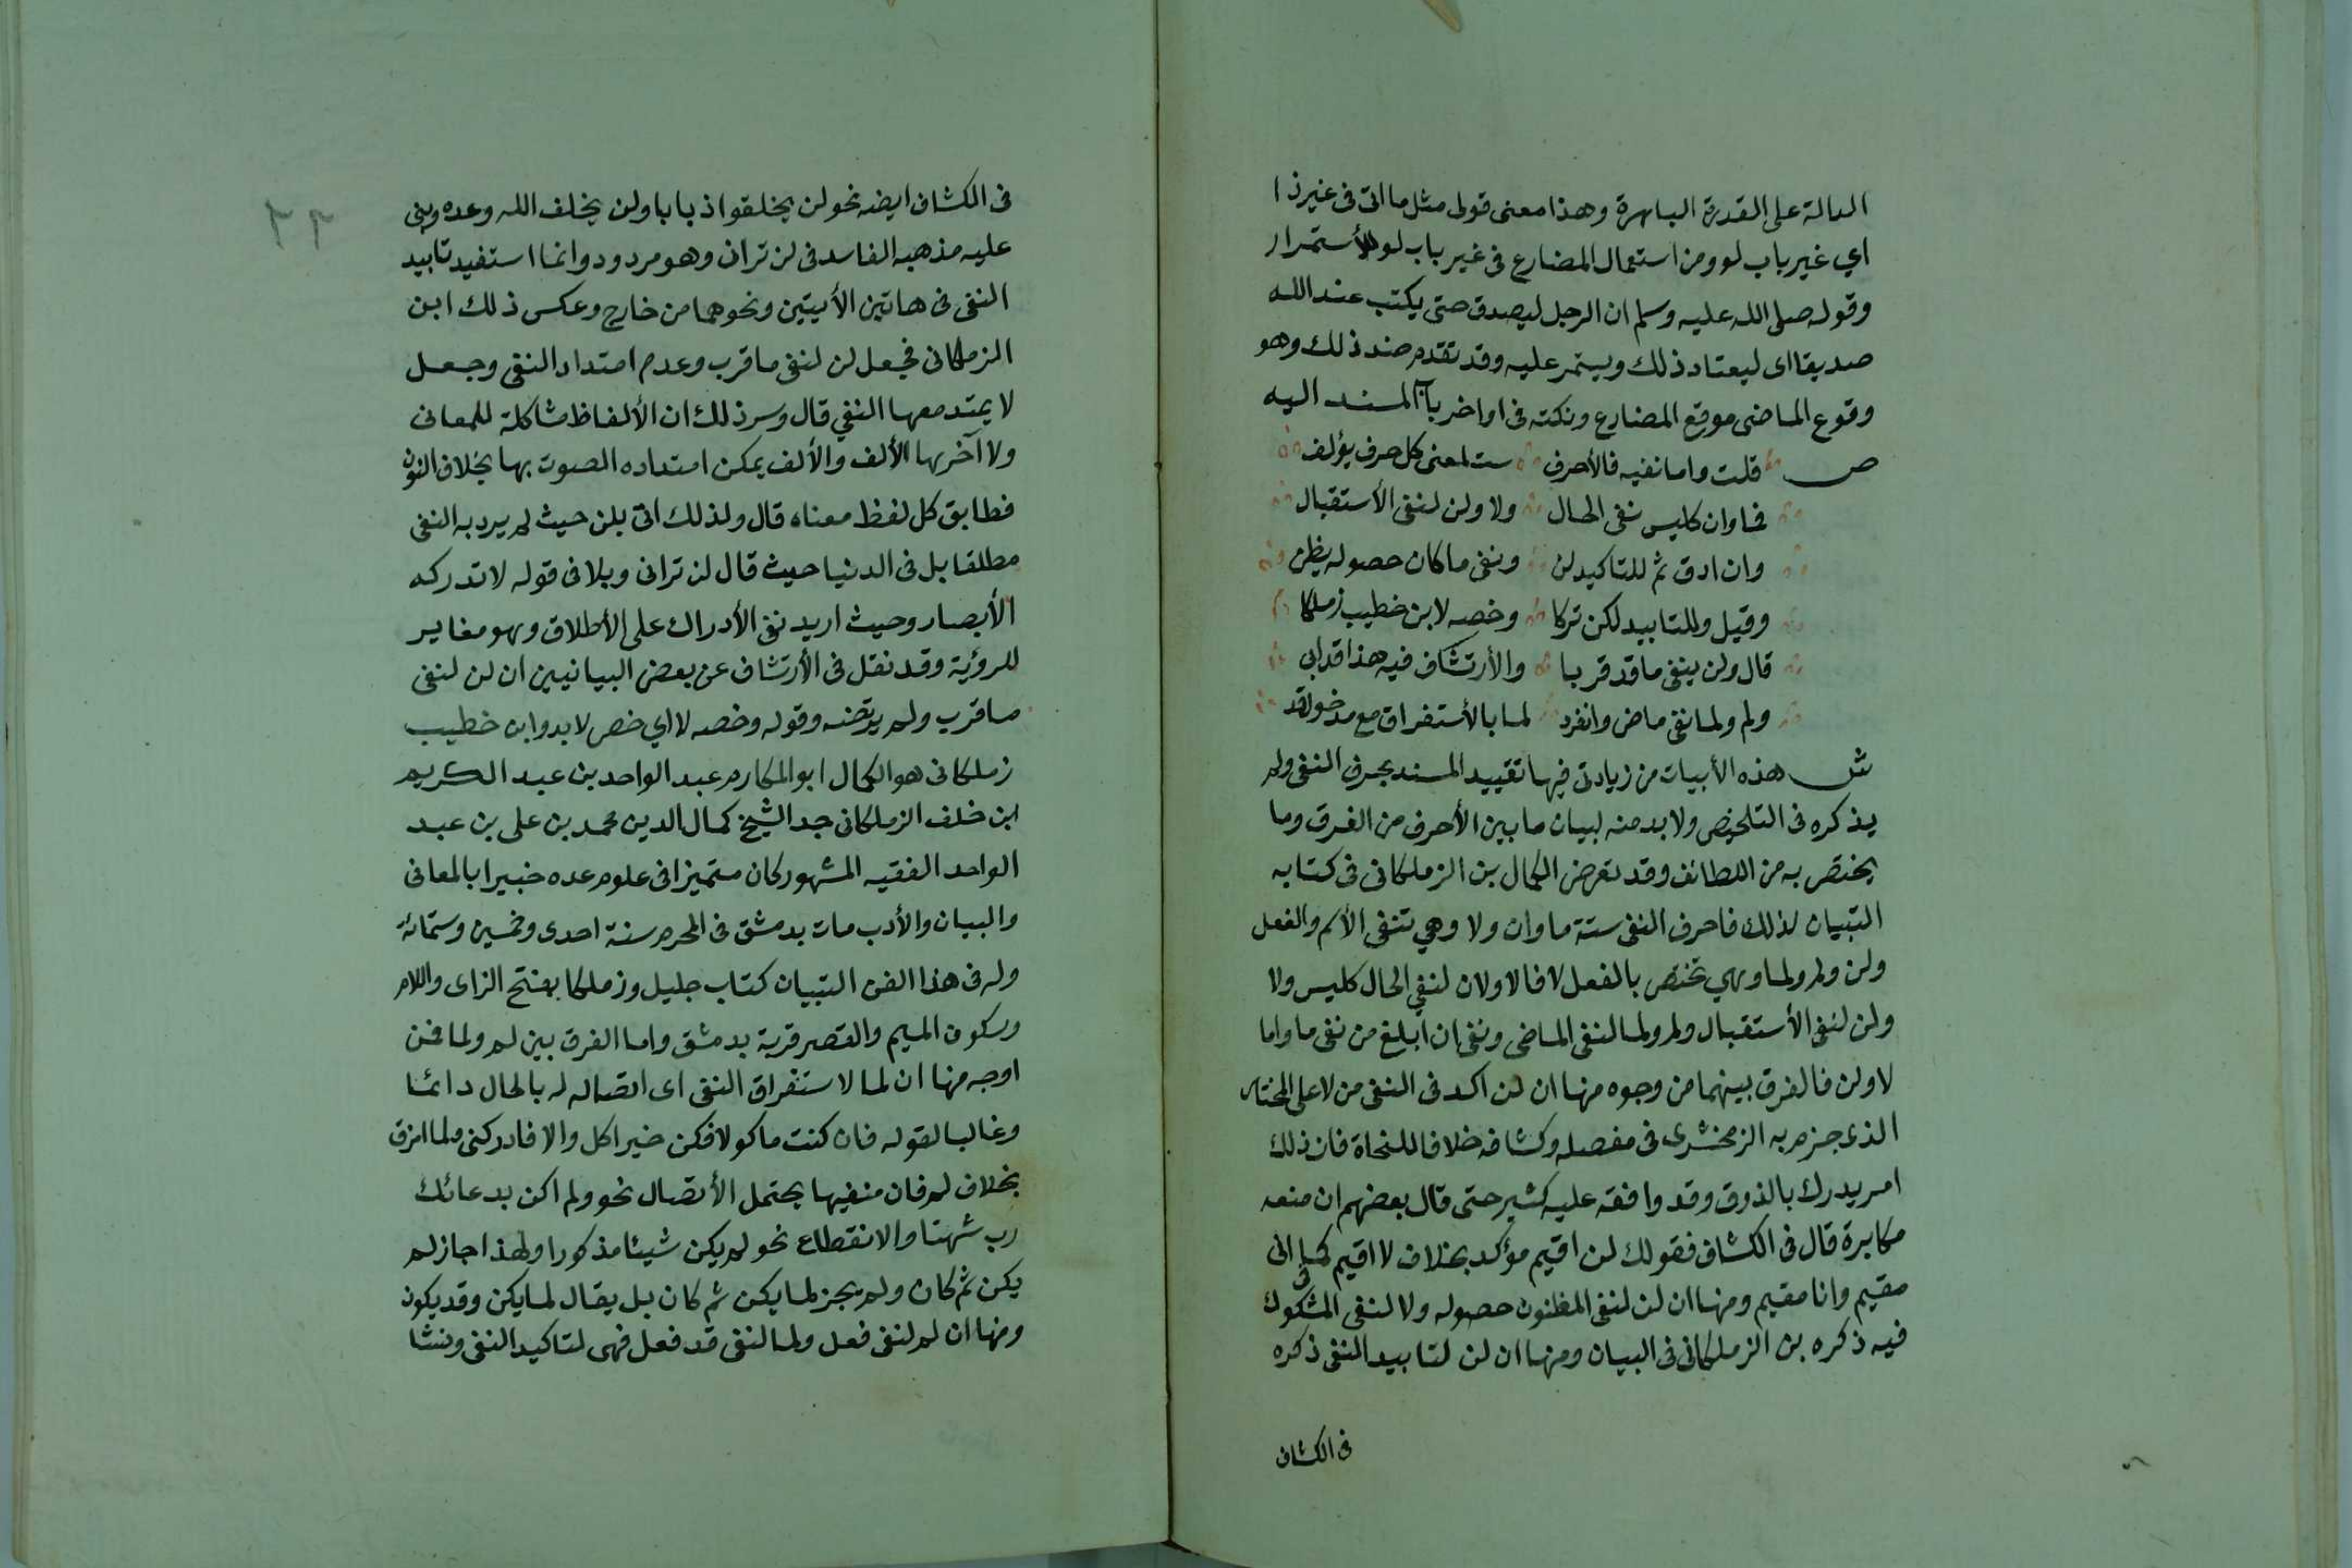 الدالة على القدرة الباهرة وهذا معنى قولى مثل ما اتى فى غير ذا
اي غير باب لو ومن استعمال المضارع فى غير باب لو للأستمرار
وقوله صلى الله عليه وسلم ان الرجل ليصدق حتى يكتب عند الله
صديقا اى ليعتاد ذلك ويستمر عليه وقد تقدم ضد ذلك وهو
وقوع الماضى موقع المضارع ونكته فى اواخر باب المسند اليه
ص قلت واما نفيه فالأحرف ست لمعنى كل حرف يؤلف
فما وان كليس نفى الحال ولا ولن لنفى الأستقبال
وان ادق ثم للتاكيد لن ونفى ما كان حصوله يظن
وقيل وللتابيد لكن تركا وخصه لا بن خطيب زملكا
قال ولن ينفى ما قد قربا والأرتشاف فيه هذا قد ابى
ولم ولما نفى ماض وانفرد لما بالأستغراق مع مدخول قد
ش هذه الأبيات من زيادتى فيها تقييد المسند بحرف النفى ولم
يذكره فى التلخيص ولا بد منه لبيان ما بين الأحرف من الفرق وما
يختص به من اللطائف وقد تعرض الكمال بن الزملكانى فى كتابه
التبيان لذلك فاحرف النفى ستة ما وان ولا وهي تنفى الأسم والفعل
ولن ولم ولما وهي تختص بالفعل لا فالاولان لنفي الحال كليس ولا
ولن لنفى الأستقبال ولم ولما لنفى الماضى ونفى ان ابلغ من نفى ما واما
لا ولن فالفرق بينهما من وجوه منها ان لن اكد فى النفى من لا على المختار
الذى جزم به الزمخشرى فى مفصله وكشافه خلافا للنحاة فان ذلك
امر يدرك بالذوق وقد وافقه عليه كثير حتى قال بعضهم ان منعه
مكابرة قال فى الكشاف فقولك لن اقيم مؤكد بخلاف لا اقيم كما فى انى
مقيم وانا مقيم ومنها ان لن لنفى المظنون حصوله ولا لنفى المشكوك
فيه ذكره بن الزملكانى فى البيان ومنها ان لن لتابيد النفى ذكره
فى الكشاف
٢٢
فى الكشاف ايضه نحو لن يخلقوا ذبابا ولن يخلف الله وعده وبنى
عليه مذهبه الفاسد فى لن ترانى وهو مردود وانما استفيد تابيد
النفى فى هاتين الأيتين ونحوهما من خارج وعكس ذلك ابن
الزملكانى فجعل لن لنفى ما قرب وعدم امتداد النفى وجعل
لا يمتد معها النفي قال وسر ذلك ان الألفاظ مشاكلة للمعانى
ولا آخرها الألف والألف يمكن امتداده الصوت بها بخلاف النون
فطابق كل لفظ معناه قال ولذلك اتى بلن حيث لم يرد به النفى
مطلقا بل فى الدنيا حيث قال لن ترانى وبلا فى قوله لا تدركه
الأبصار وحيث اريد نفى الأدراك على الأطلاق وهو مغاير
للرؤية وقد نقل فى الأرتشاف عن بعض البيانيين ان لن لنفى
ما قرب ولم يرتضه وقوله وخصه لا اي خص لا بدوابن خطيب
زملكانى هو الكمال ابو المكارم عبد الواحد بن عبد الكريم
ابن خلف الزملكانى جد الشيخ كمال الدين محمد بن على بن عبد
الواحد الفقيه المشهور كان متميزا فى علوم عده خبيرا بالمعانى
والبيان والأدب مات بدمشق فى المحرم سنة احدى وخمسين وستمائة
وله فى هذا الفن التبيان كتاب جليل وزملكا بفتح الزاى واللام
وسكون الميم والقصر قرية بدمشق واما الفرق بين لم ولما فمن
اوجه منها ان لما لاستغراق النفى اى اتصاله له بالحال دائما
وغالبا لقوله فان كنت ماكولا فكن خير اكل والا فادركنى ولما امزق
بخلاف لم فان منفيها يحتمل الأتصال نحو ولم اكن بدعائك
رب شقيا والانقطاع نحو لم يكن شيئا مذكورا ولهذا جاز لم
يكن ثم كان ولم يجز لما يكن ثم كان بل يقال لما يكن وقد يكون
ومنها ان لم لنفى فعل ولما لنفى قد فعل فهى لتاكيد النفى ونشا